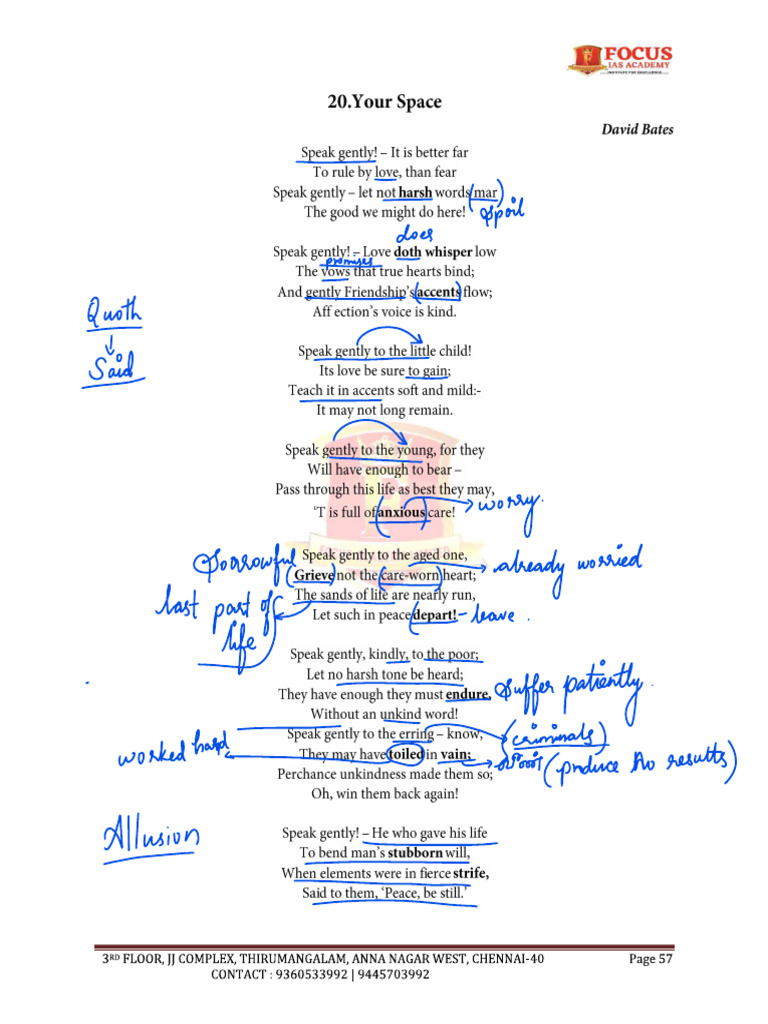 FOCUS
IAS ACADEMY
INSTITUTE FOR EXCELLENCE
20.Your Space
David Bates
Speak gently! – It is better far
To rule by love, than fear
Speak gently – let not harsh words mar
The good we might do here!
Spoil
does
Speak gently! – Love doth whisper low
promises
The vows that true hearts bind;
And gently Friendship's accents flow;
Aff ection's voice is kind.
Quoth
Said
Speak gently to the little child!
Its love be sure to gain;
Teach it in accents soft and mild:-
It may not long remain.
Speak gently to the young, for they
Will have enough to bear –
Pass through this life as best they may,
'T is full of anxious care!
worry.
Sorrowful
Speak gently to the aged one,
Grieve not the care-worn heart;
already worried
The sands of life are nearly run,
Let such in peace depart! – leave.
last part of
life
Speak gently, kindly, to the poor;
Let no harsh tone be heard;
They have enough they must endure,
Suffer patiently.
Without an unkind word!
Speak gently to the erring – know,
(criminals)
They may have toiled in vain;
worked hard
(produce no results)
Perchance unkindness made them so;
Oh, win them back again!
Allusion
Speak gently! – He who gave his life
To bend man's stubborn will,
When elements were in fierce strife,
Said to them, 'Peace, be still.'
3RD FLOOR, JJ COMPLEX, THIRUMANGALAM, ANNA NAGAR WEST, CHENNAI-40 Page 57
CONTACT : 9360533992 | 9445703992